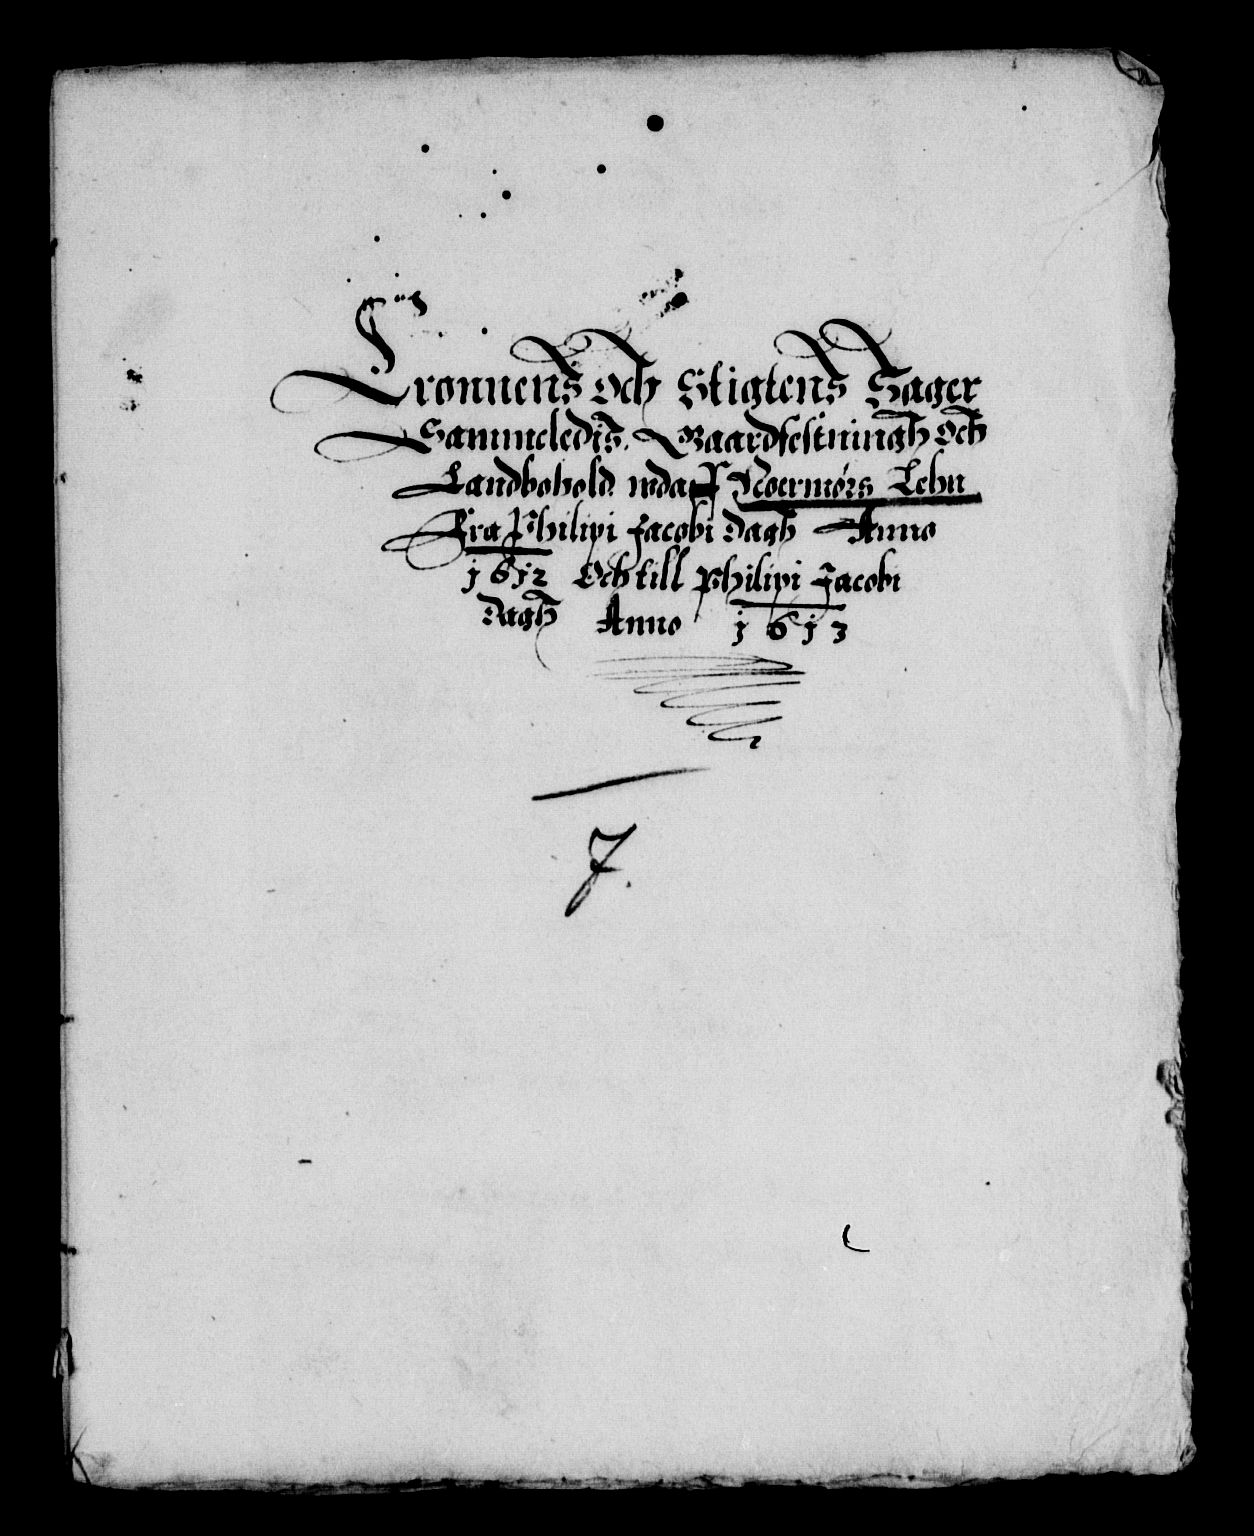 Cronnens och Stigtens Sager
Sammeledis. Gaardfestningh och
Landbohold udaff Noermørs Lehn
Fra Philipi Jacobi dagh Anno
1612 Och till Philipi Jacobi
dagh Anno 1613
7.